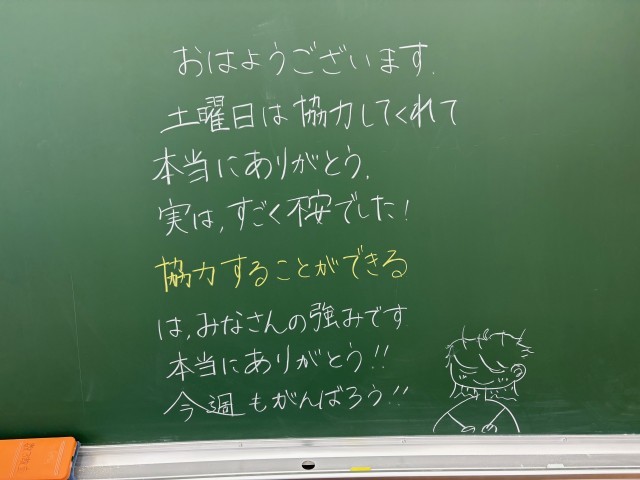 おはようございます.
土曜日は協力してくれて
本当にありがとう.
実は,すごく不安でした!
協力することができる
は,みなさんの強みです
本当にありがとう!!
今週もがんばろう!!